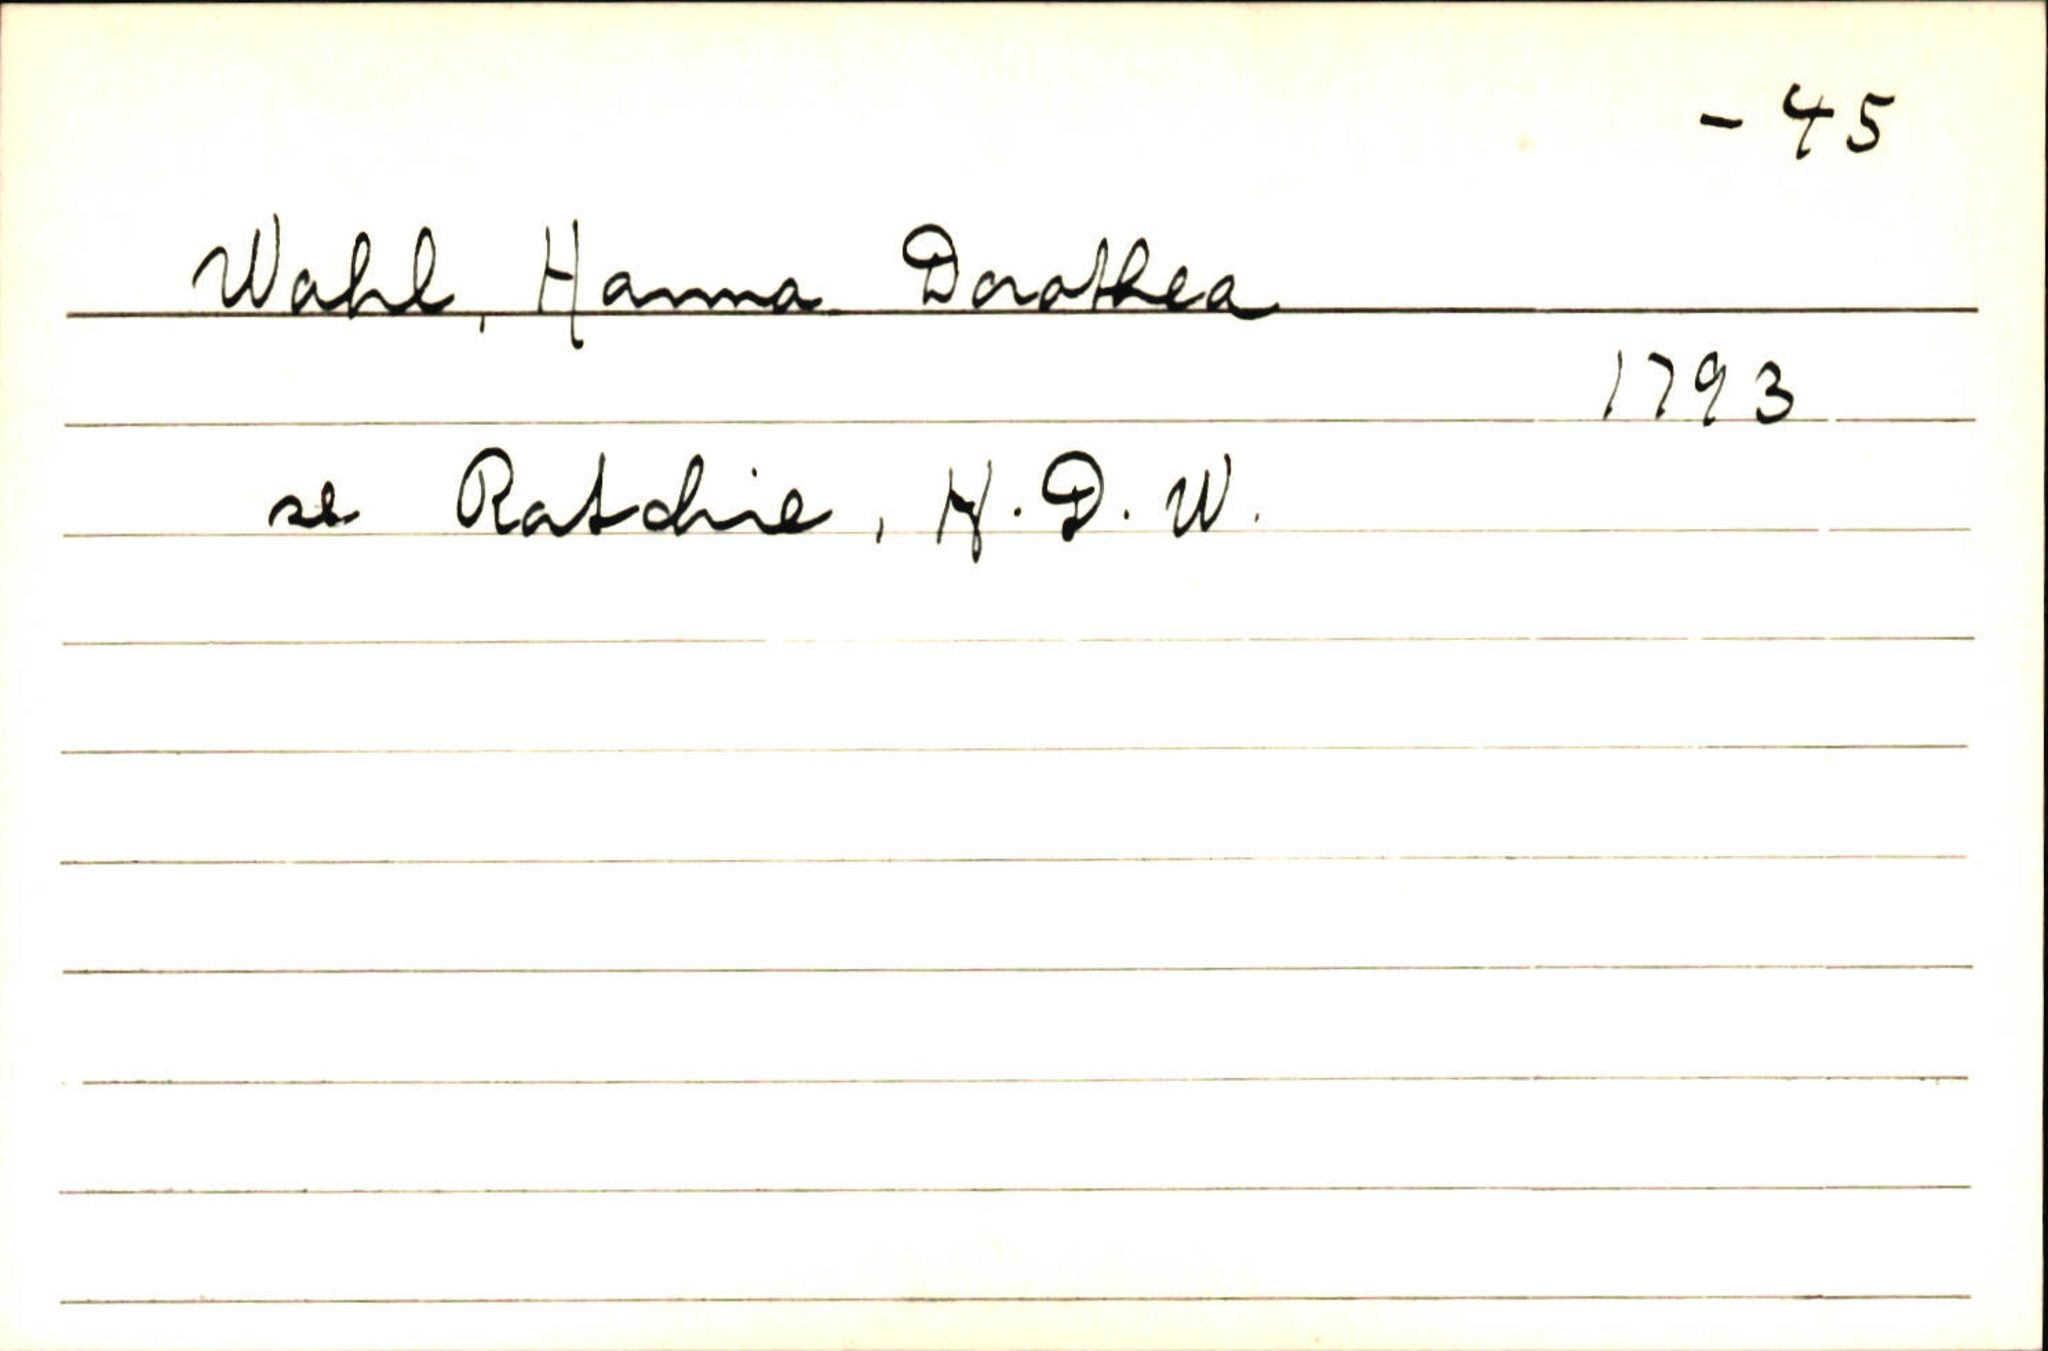 - 45
Wahl, Hanna Dorothea
1793
se Ratchie, H. D. W.